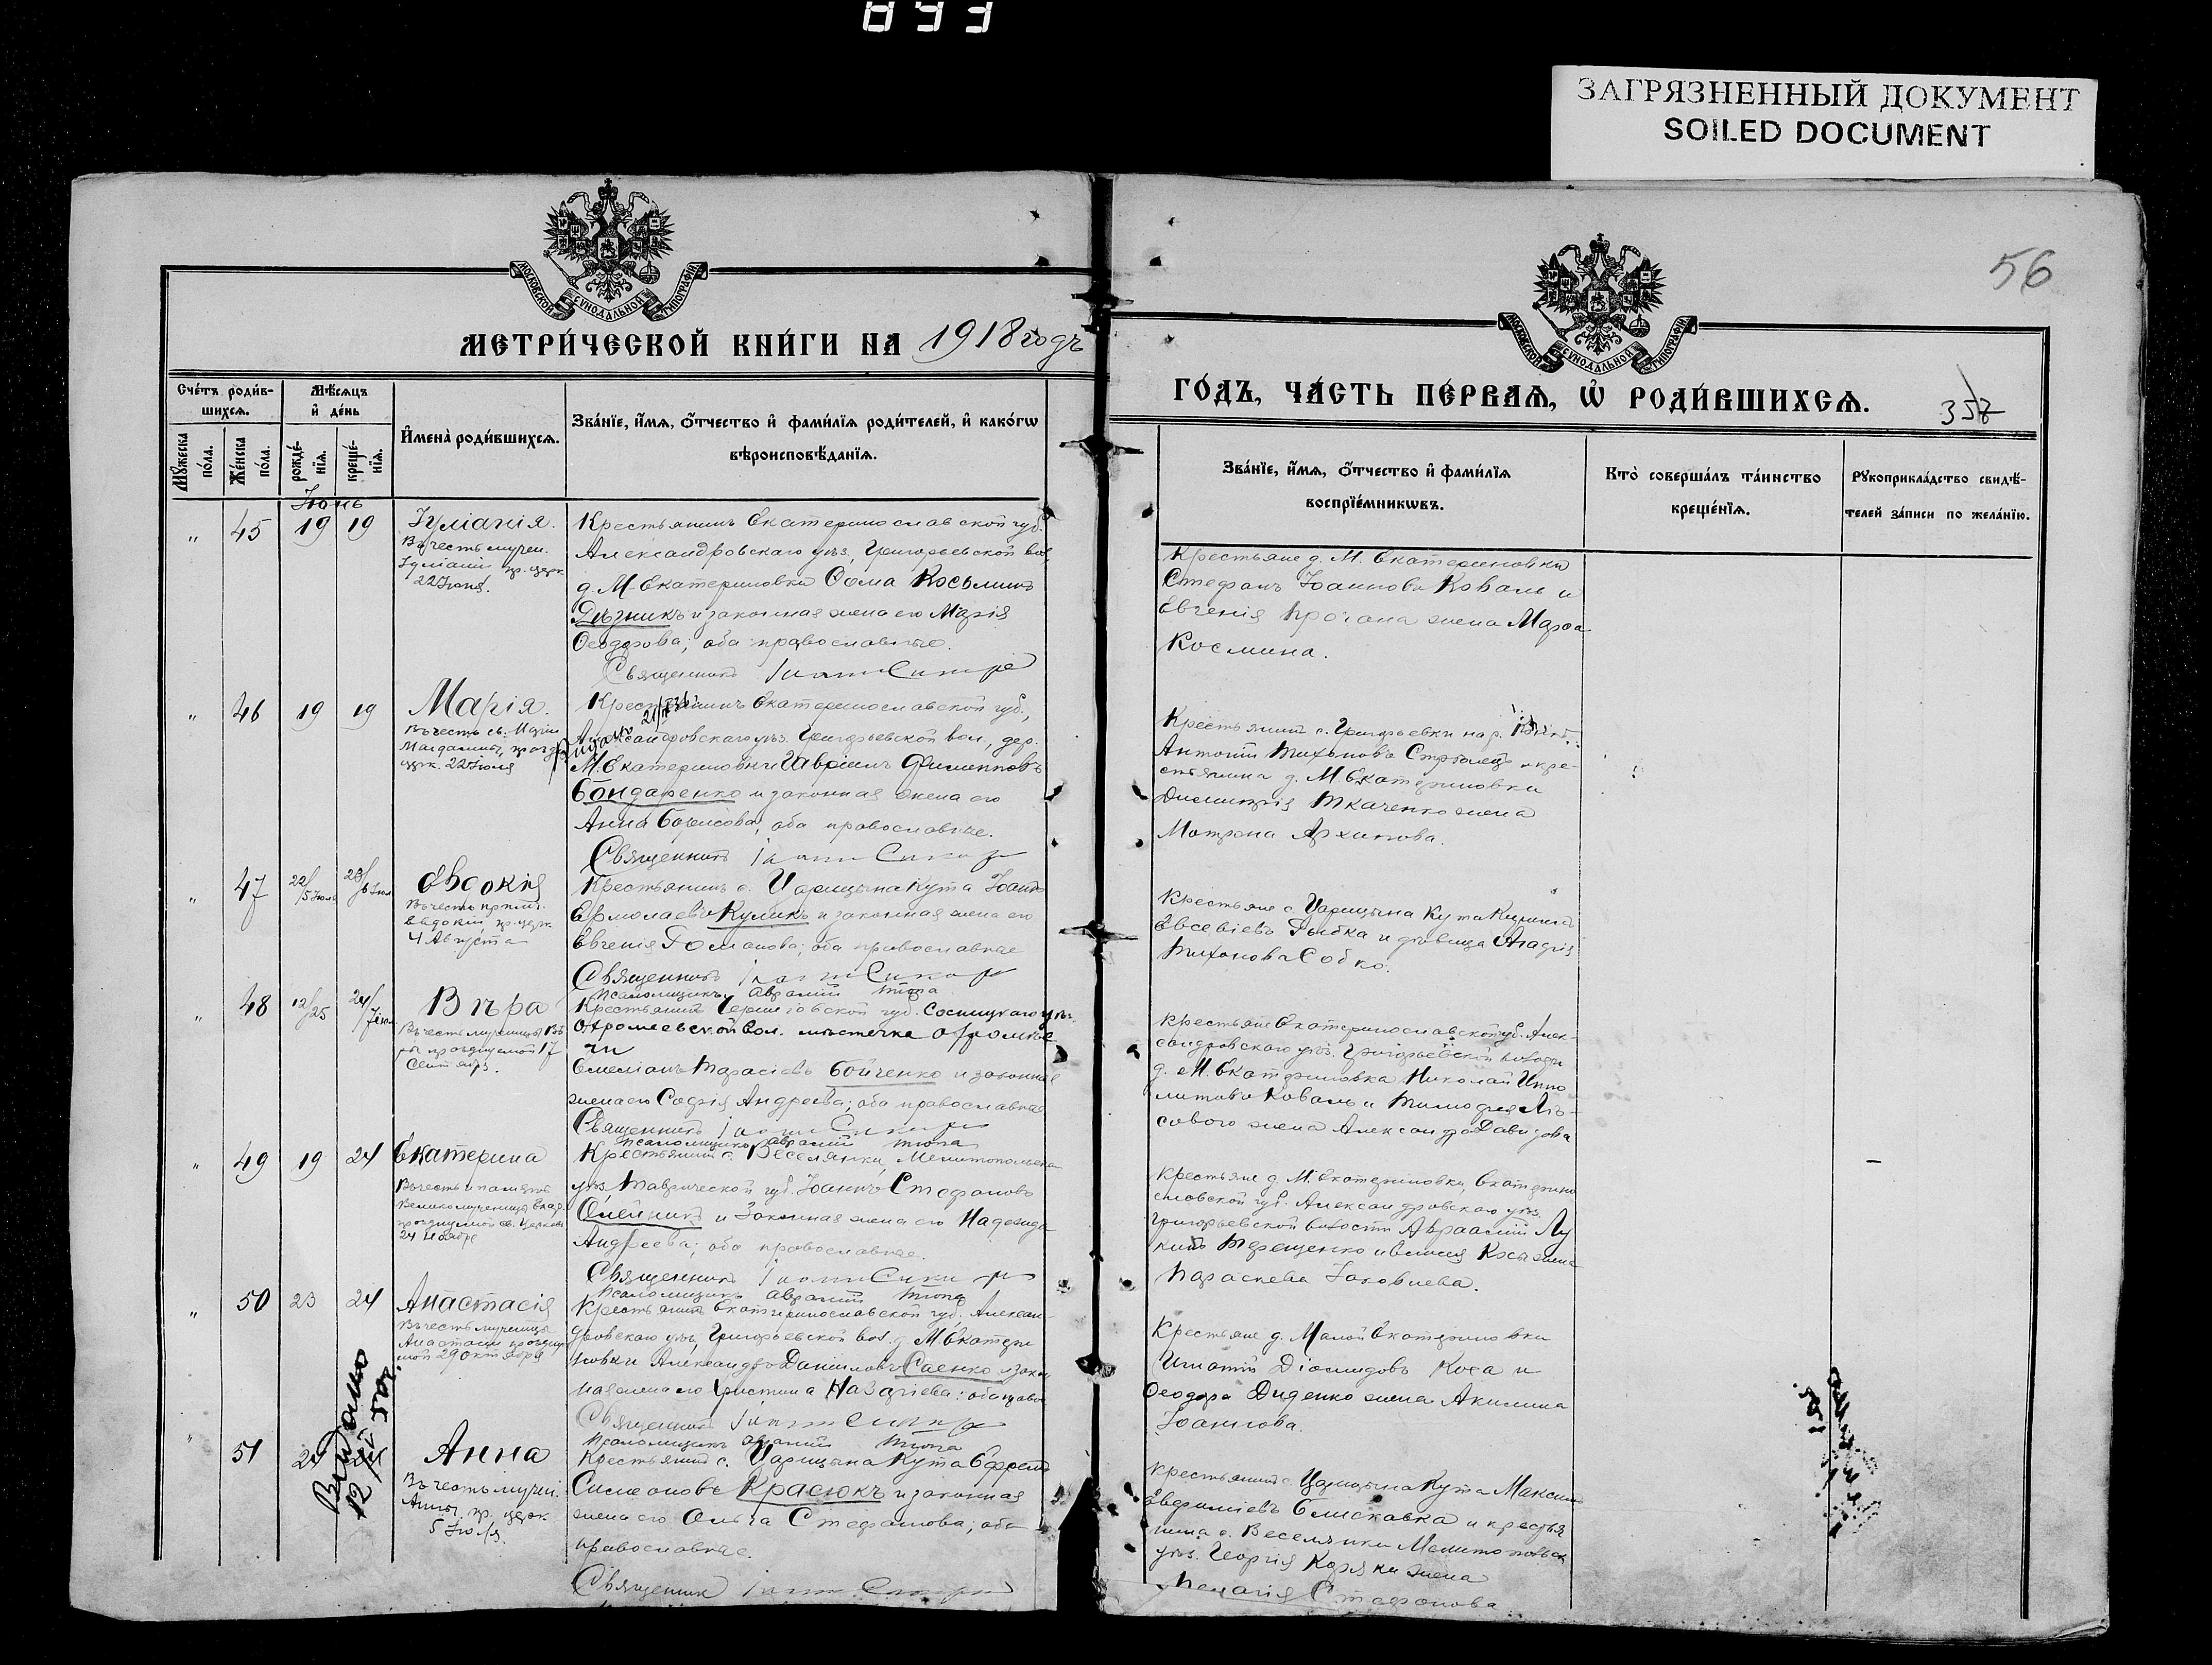 893
ЗАГРЯЗНЕННЫЙ ДОКУМЕНТ
SOILED DOCUMENT
56
МОСКОВСКОЙ СѴНОДАЛЬНОЙ ТИПОГРАФІИ
МОСКОВСКОЙ СѴНОДАЛЬНОЙ ТИПОГРАФІИ
МЕТРИ́ЧЕСКОЙ КНИ́ГИ НА 1918 годъ
ГО́ДЪ, ЧА́СТЬ ПЕ́РВАѦ, Ѡ҆ РОДИ́ВШИХСѦ.
357
Сче́тъ роди́в-
шихсѧ.
Мѣ́сѧцъ
и҆ де́нь
Мꙋ́жеска
по́ла.
Же́нска
по́ла.
рожде́-
нїѧ.
креще́-
нїѧ.
И҆мена̀ роди́вшихсѧ.
Зва́нїе, и҆́мѧ, ѻ҆́тчество и҆ фами́лїѧ роди́телей, и҆ како́гѡ
вѣроисповѣ́данїѧ.
Зва́нїе, и҆́мѧ, ѻ҆́тчество и҆ фами́лїѧ
воспрїе́мникѡвъ.
Кто̀ соверша́лъ та́инство
креще́нїѧ.
Рꙋкоприкла́дство свидѣ́-
телей за́писи по жела́нїю.
Іюнь
" 45 19 19
Іуліанія.
Въ честь мучен.
Іуліаніи пр. церк.
22 Іюня.
Крестьянинъ Екатеринославской губ.
Александровскаго уѣз. Григорьевской вол.
д. М-Екатериновки Ѳома Косьминъ
и законная жена его Марія
Ѳеодорова; оба православные.
Священникъ
Крестьяне д. М. Екатериновки
Стефанъ Іоанновъ Коваль и
Евгенія жена Марѳа
Космина.
" 46 19 19
Марія.
Въ честь св. Маріи
Магдалины, празд.
церк. 22 Іюля
Крестьянинъ Екатеринославской губ.,
Александровскаго уѣз. Григорьевской вол., дер.
М. Екатериновки Гавріилъ Филипповъ
Бондаренко и законная жена его
Анна Борисова, оба православные.
Священникъ
Крестьянинъ с. Григорьевки
Антоній Тихоновъ Стрѣлецъ и кре-
стьянина д. М Екатериновки
Димитрія Ткаченко жена
Матрона Архипова.
" 47 22/5 Іюля 23/6 Іюл
Евдокія
Въ честь
Евдокіи, пр. церк.
4 Августа
Крестьянинъ с. Царицына Кута Іоаннъ
Ермолаевъ Куликъ и законная жена его
Евгенія Романова; оба православные
Священникъ
Псаломщикъ Авраамій
Крестьяне с. Царицына Кута
Евсевіевъ Рыбка и дѣвица
Тихонова Собко.
" 48 12/25 24/7 іюл
Вѣра
Въ честь мученицы Вѣ-
ры празднуемой 17
Сентября.
Крестьянинъ Черниговской губ. Сосницкаго уѣз.
вол. мѣстечка
Емеліанъ Тарасіевъ Бойченко и законная
жена его Софія Андреева; оба православные
Священникъ
Псаломщикъ Авраамій
Крестьяне Екатеринославской губ. Алек-
сандровскаго уѣз. Григорьевской волости
д. М. Екатериновка Николай Иппо
литовъ Коваль и Тимофея Лѣ-
сового жена Александра Давидова
" 49 19 24
Екатерина
Въ честь и память
Великомученицы Екатер.
празднуемой св. Церковью
24 Ноября
Крестьянинъ с. Веселянки, Мелитопольска
уѣз. Таврической губ. Іоаннъ Стефановъ
Олейникъ и Законная жена его Надежда
Андреева; оба православные.
Священникъ
Псаломщикъ Авраамій
Крестьяне д. М. Екатериновки, Екатерино
славской губ. Александровскаго уѣз.
Григорьевской волости Авраамій Лу
кинъ Терещенко и жена
Параскева Іаковлева.
" 50 23 24
Анастасія
Въ честь мученицы
Анастасіи празднуе
мой 29 октября
Крестьянинъ Екатеринославской губ., Алексан-
дровскаго уѣз., Григорьевской вол. д. М Екатери
новки Александръ Даніиловъ Саенко и закон
ная жена его Христина Назаріева; оба правос
Священникъ
Псаломщикъ Авраамій
Крестьяне д. Малой Екатериновки
Игнатій Діомидовъ Коха и
Ѳеодора Диденко жена Акилина
Іоаннова.
" 51 24
Анна
Въ честь мучен.
Анны, пр. церк.
5 Іюля.
Крестьянинъ с. Царицына Кута Ефремъ
Симеоновъ Красюкъ и законная
жена его Ольга Стефанова; оба
православные.
Священникъ
Крестьянинъ с. Царицына Кута Максимъ
Евфиміевъ Блискавка и крестья
нина с. Веселянки Мелитопольск
уѣз. Георгія Коряки жена
Пелагія Стефанова